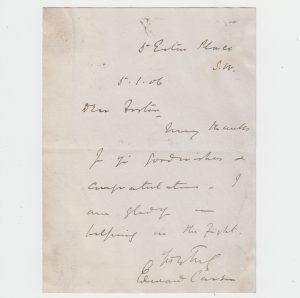 5 Eaton Place
S.W.
5.1.06
Dear Foster
Many thanks
for yr goodwishes &
congratulations. I
am gladly
helping in the fight.
Yrs truly
Edward Carson